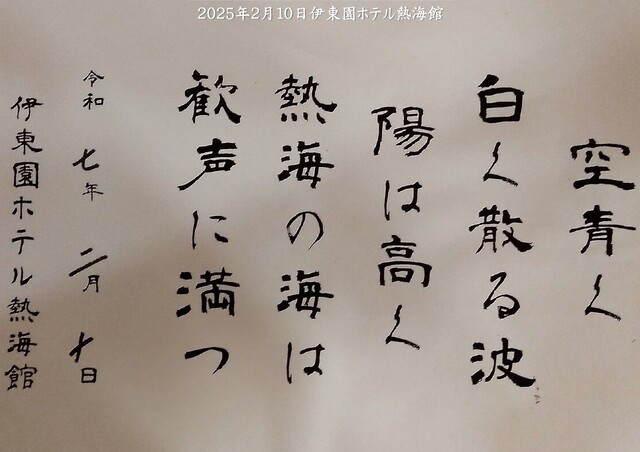 2025年2月10日伊東園ホテル熱海館
空青く
白く散る波
陽は高く
熱海の海は
歓声に満つ
令和 七年 二月 十日
伊東園ホテル熱海館